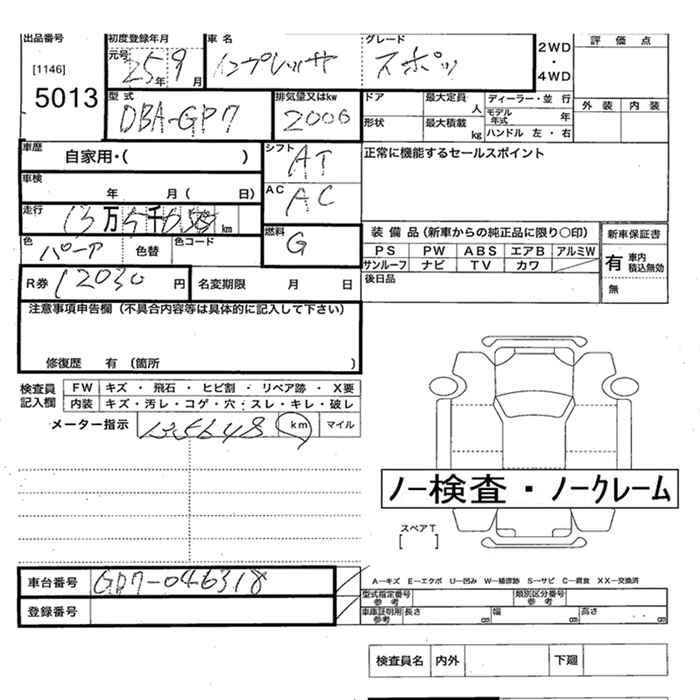 出品番号 初度登録年月 車名 グレード 2WD ・ 4WD 評価点
[1146] 元号 25年 9月 インプレッサ スポーツ
5013 型式 DBA-GP7 排気量又はkw 2000 ドア 最大定員 人 ディーラー・並行 外装 内装
形状 最大積載 kg モデル年式 年
ハンドル 左・右
車歴 自家用・( ) シフト AT 正常に機能するセールスポイント
車検 年 月( 日) AC AC
走行 13万5千 km
色 パープ 色替 色コード 燃料 G 装備品(新車からの純正品に限り○印) 新車保証書
PS PW ABS エアB アルミW 有 車内積込無効
サンルーフ ナビ TV カワ 無
R券 12030円 名変期限 月 日 後日品
注意事項申告欄(不具合内容等は具体的に記入して下さい)
修復歴 有 (箇所 )
検査員記入欄 FW キズ・飛石・ヒビ割・リペア跡・X要
内装 キズ・汚レ・コゲ・穴・スレ・キレ・破レ
メーター指示 135648 km マイル
ノー検査・ノークレーム
スペアT
[ ]
車台番号 GP7-046318 A−キズ E−エクボ U−凹み W−補修跡 S−サビ C−腐食 XX−交換済
登録番号 型式指定番号 参考 類別区分番号 参考
車庫証明用 参考 長さ cm 幅 cm 高さ cm
検査員名 内外 下廻